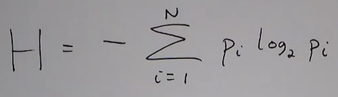 H = - \sum_{i=1}^{N} p_i \log_2 p_i